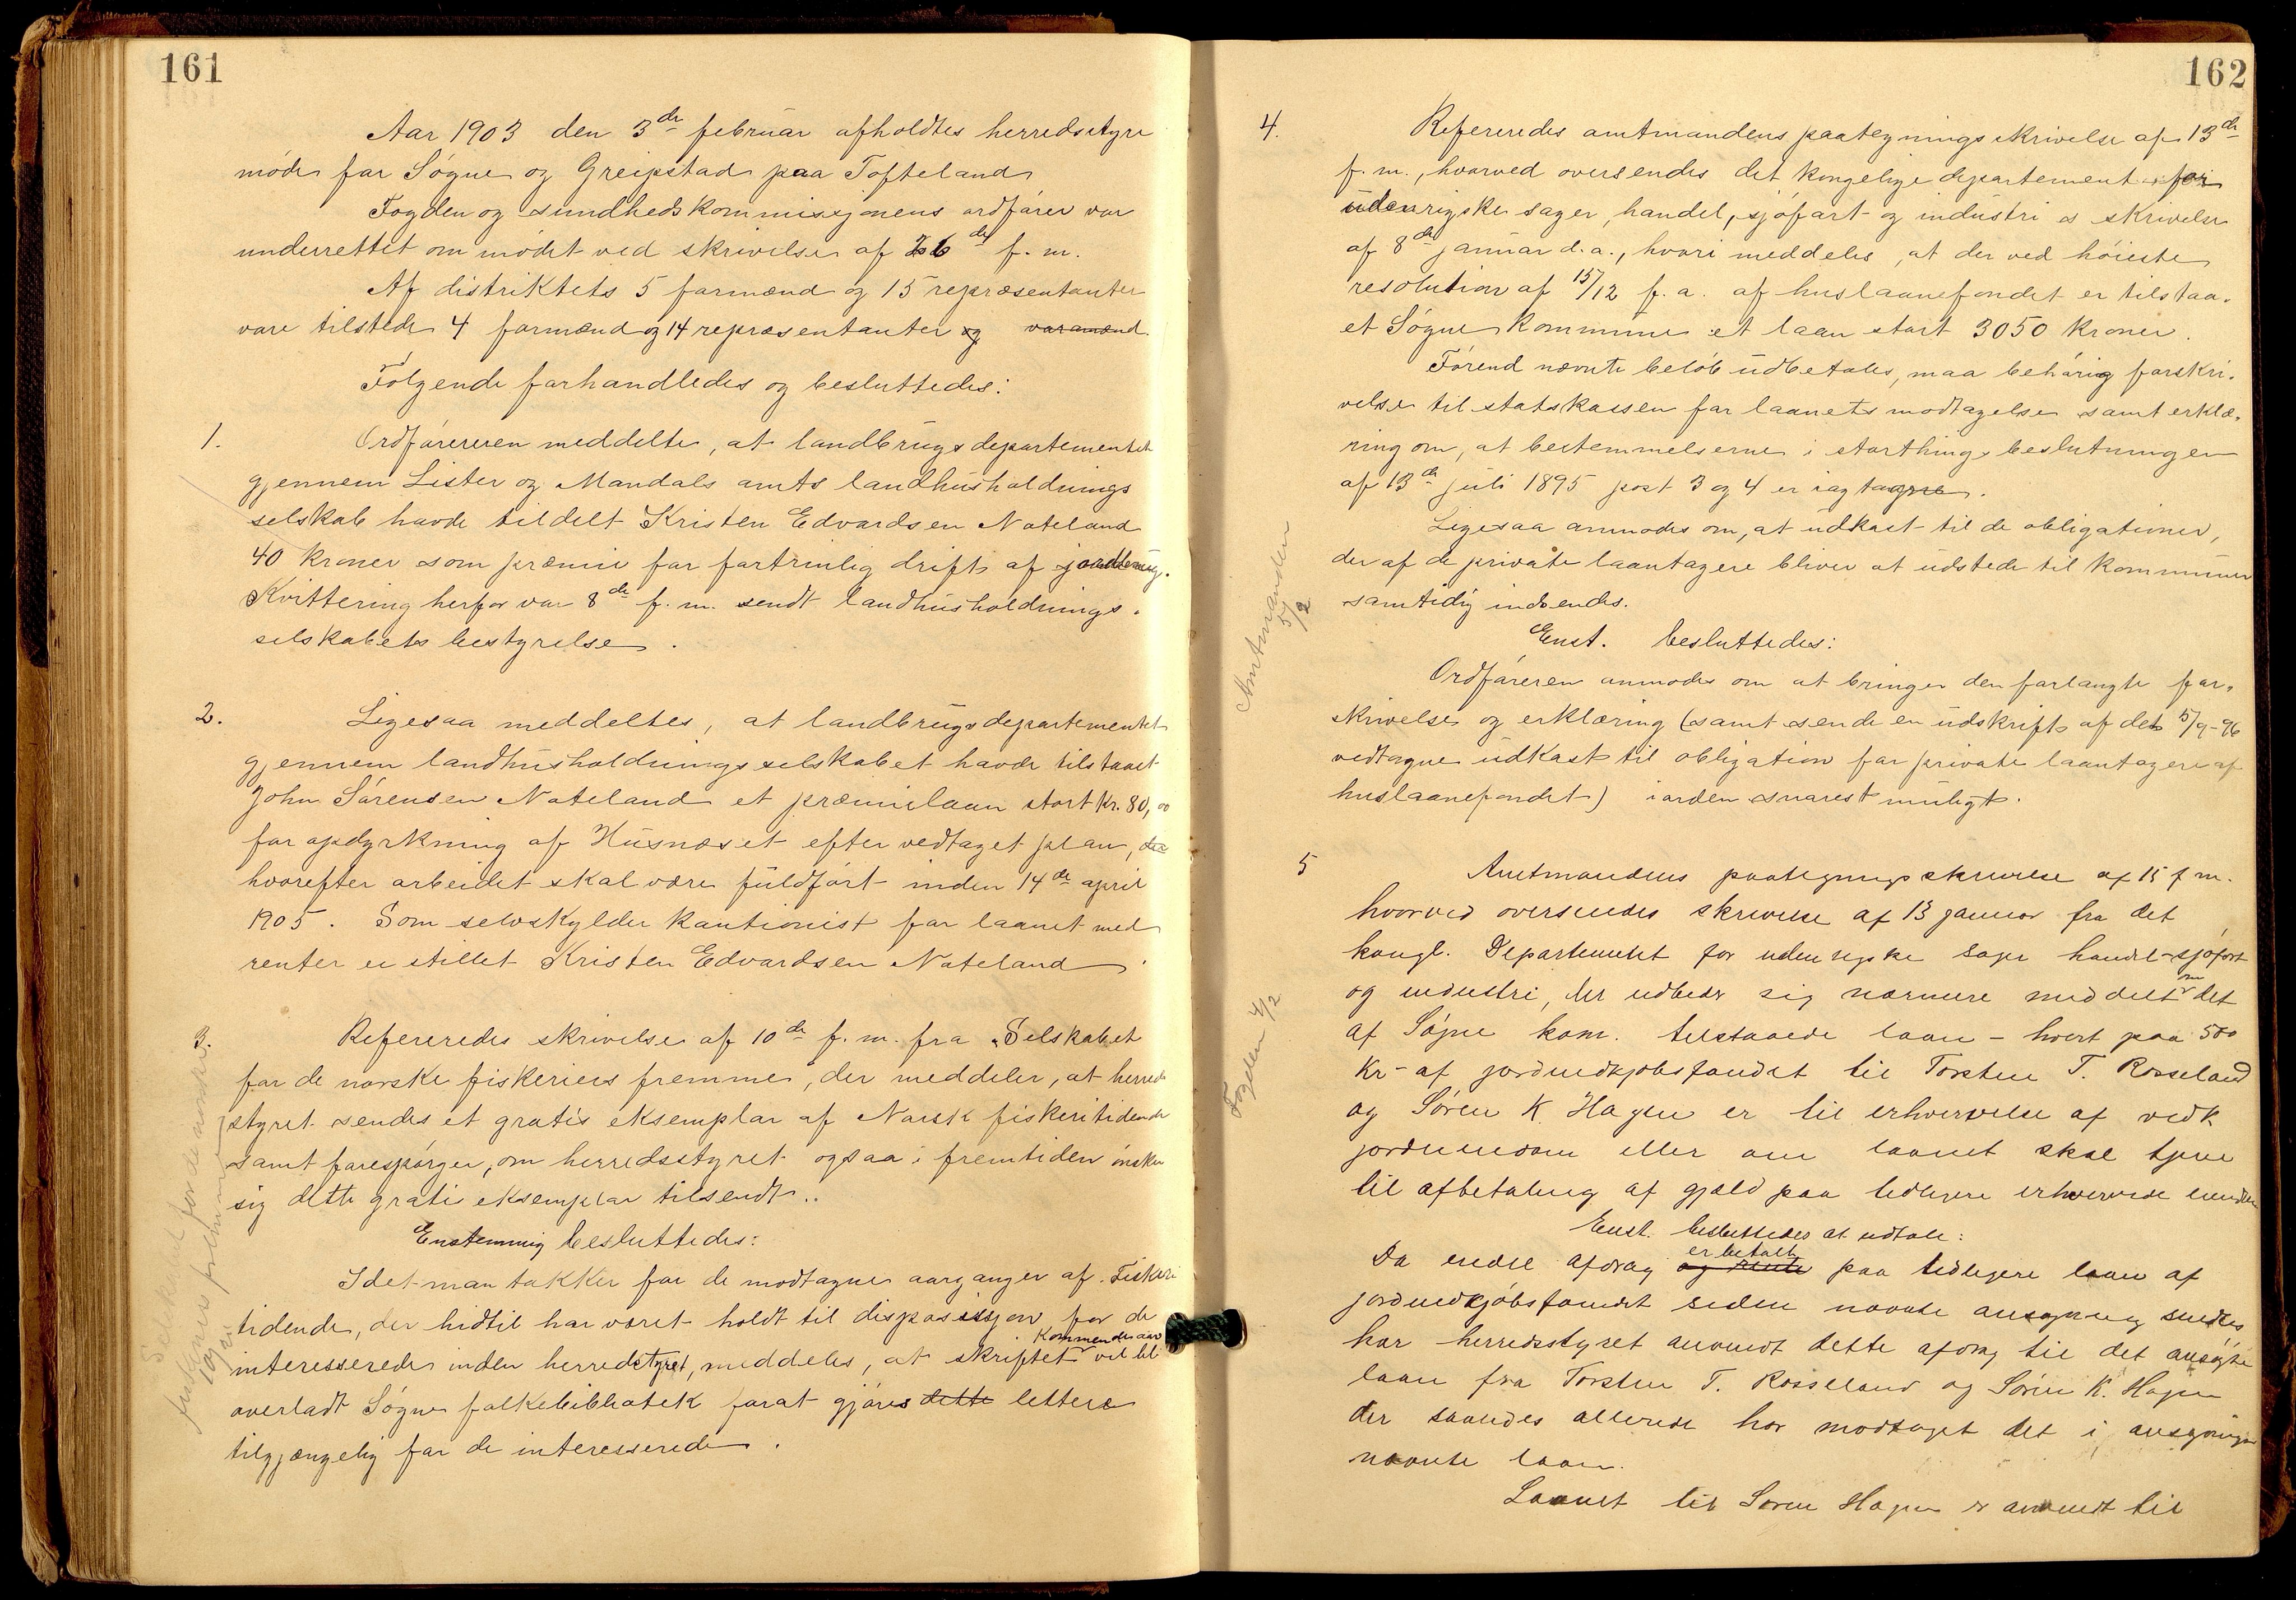 161
Aar 1903 den 3de februar afholdtes herredsstyre
møde for Søgne og Greipstad paa Tofteland
Fogden og sundhedskommissjonens ordfører var
underrettet om mødet ved skrivelse af 26de f. m.
Af distriktets 5 formænd og 15 repræsentanter
vare tilstede 4 formænd og 14 repræsentanter og varamænd
Følgende forhandledes og besluttedes:
1. Ordføreren meddelte, at landbrugsdepartementet
gjennem Lister og Mandals amts landhusholdnings
selskab havde tildelt Kristen Edvardsen Nateland
40 kroner som præmie for fortrinlig drift af jordbrug.
Kvittering herfor var 8de f. m. sendt landhusholdnings-
selskabets bestyrelse.
2. Ligesaa meddeltes, at landbrugsdepartementet
gjennem landhusholdningsselskabet havde tilstaaet
John Sørensen Nateland et præmielaan stort kr. 80,00
for opdyrkning af Husnæset efter vedtaget plan,
hvorefter arbeidet skal være fuldført inden 14de april
1905. Som selvskylder kautionist for laanet med
renter er stillet Kristen Edvardsen Nateland.
3. Refereredes skrivelse af 10de f. m. fra Selskabet
for de norske fiskeriers fremme, der meddeler, at herreds
styret sendes et gratis eksemplar af Norsk fiskeritidende
samt forespørger, om herredsstyret ogsaa i fremtiden ønsker
sig dette gratis eksemplar tilsendt.
Enstemmig besluttedes:
Idet man takker for de modtagne aargange af Fiskeri
tidende, der hidtil har været holdt til disposisjon for de
interesserede inden herredstyret, meddeles, at skriftet kommende aar vil bli
overladt Søgne folkebibliothek forat gjøres dette lettere
tilgjængelig for de interesserede.
Selskabet for de norske
fiskeriers fremme
162
4. Refereredes amtmandens paategningsskrivelse af 13de
f. m., hvorved oversendes det kongelige departement for
udenrigske sager, handel, sjøfart og industri s skrivelse
af 8de januar d. a., hvori meddeles, at der ved høieste
resolution af 15/12 f. a. af huslaanefondet er tilstaa-
et Søgne kommune et laan stort 3050 kroner.
Førend nævnte beløb udbetales, maa behørig forskri-
velse til statskassen for laanets modtagelse samt erklæ-
ring om, at bestemmelserne i storthingsbeslutningen
af 13de juli 1895 post 3 og 4 er iagtagne.
Ligesaa anmodes om, at udkast til de obligationer,
der af de private laantagere bliver at udstede til kommunen
samtidig indsendes.
Enst. besluttedes:
Ordføreren anmodes om at bringe den forlangte for-
skrivelse og erklæring (samt sende en udskrift af det 5/9-96
vedtagne udkast til obligation for private laantagere af
huslaanefondet) i orden snarest muligt.
Amtmanden
5/2
5 Amtmandens paategningsskrivelse af 15 f m.
hvorved oversendes skrivelse af 13 januar fra det
kongl. Departementet for udenrigske sager handel-sjøfart
og industri, der udbeder sig nærmere meddelt om det
af Søgne kom. tilstaaede laan - hvert paa 500
Kr - af jordindkjøbsfondet til Torsten T. Rosseland
og Søren K. Hagen er til erhvervelse af vedk
jordeiendom eller om laanet skal tjene
til afbetaling af gjæld paa tidligere erhvervede eiendom
Enst. besluttedes at udtale:
Da endel afdrag og rente er betalt paa tidligere laan af
jordindkjøbsfondet siden nævnte ansøgning sendtes,
har herredsstyret anvendt dette afdrag til det ansøgte
laan fra Torsten T. Rosseland og Søren K. Hagen
der saaledes allerede har modtaget det i ansøgningen
nævnte laan.
Laanet til Søren Hagen er anvendt til
Fogden 4/2